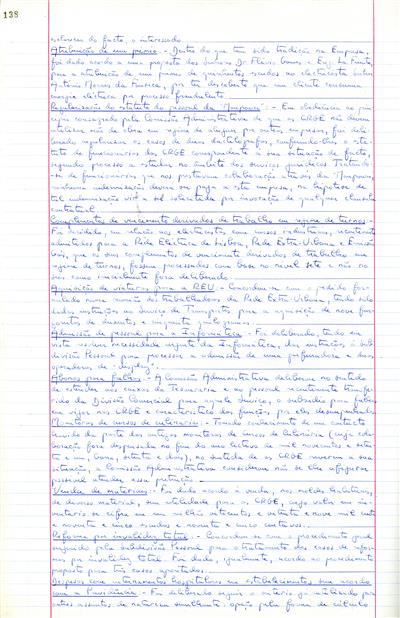 138
Atribuição de um prémio - Dentro do que tem sido tradição na Empresa,
foi dado acordo a uma proposta dos Senhores Dr. Flávio e Eng.
para a atribuição de um prémio de quinhentos escudos ao electricista
António Moraes da Fonseca, por ter descoberto que um cliente consumia
energia eléctrica por processo fraudulento.
Regularização do estatuto do pessoal da - Em obediência ao
consagrado pela Comissão Administrativa de que as CRGE não devem
utilizar mão de obra em regime de aluguer por outras empresas, foi deli-
berado regularizar os casos de duas dactilógrafas, conferindo-lhes o esta-
tuto de funcionárias das CRGE correspondente à sua situação de facto,
segundo processo a estudar no âmbito dos serviços jurídicos. Tratando-
-se de funcionárias que nos prestavam colaboração através da
nenhuma indemnização deverá ser paga a esta empresa, na hipótese de
tal indemnização vir a ser solicitada por invocação de qualquer cláusula
contratual.
Complementos de vencimento derivados de trabalho em regime de turnos -
Foi decidido, em relação aos electricistas com cursos industriais, recentemente
admitidos para a Rede Eléctrica de Lisboa, Rede Extra-Urbana e
que os seus complementos de vencimento derivados de trabalho em
regime de turnos, fossem processados com base no nível sete e não no
seis como inicialmente fora deliberado.
Aquisição de viaturas para a REU - Concordou-se com o pedido for-
mulado numa reunião de trabalhadores da Rede Extra-Urbana, tendo sido
dadas instruções ao Serviço de Transportes para a aquisição de nove
Admissão de pessoal para a Informática - Foi deliberado, tendo em
vista necessidade urgente da Informática, dar instruções à Sub-
divisão Pessoal para processar a admissão de uma perfuradora e dois
operadores de "display".
Abonos para falhas - A Comissão Administrativa deliberou no sentido
de estender aos caixas da Tesouraria e ao pessoal recentemente transfe-
rido da Divisão Comercial para aquele serviço, o subsídio para falhas
em vigor nas CRGE e característico das funções por eles desempenhadas.
Monitores de cursos de - Tomado conhecimento de um contacto
havido da parte dos antigos monitores de cursos de (cuja cola-
boração fora dispensada no fim do ano lectivo de mil novecentos e seten-
ta e um barra, setenta e dois), no sentido de as CRGE reverem a sua
situação, a Comissão Administrativa considerou não se lhe afigurar
possível atender essa pretensão.
Venda de materiais - Foi dado acordo à venda, nos moldes habituais,
de diverso material, sem utilidade para as CRGE, cujo valor em in-
ventário se cifra em um milhão oitocentos e setenta e nove mil cento
e noventa e cinco escudos e noventa e cinco centavos.
Reforma por invalidez total - Concordou-se com o procedimento geral
sugerido pela Subdivisão Pessoal para o tratamento dos casos de refor-
mas por invalidez total. Foi dado, igualmente, acordo ao procedimento
proposto para três casos apontados.
Despesas com internamentos hospitalares em estabelecimentos sem acordo
com a Previdência - Foi deliberado seguir o critério já utilizado para
outros assuntos de natureza semelhante: opção pela forma de cálculo